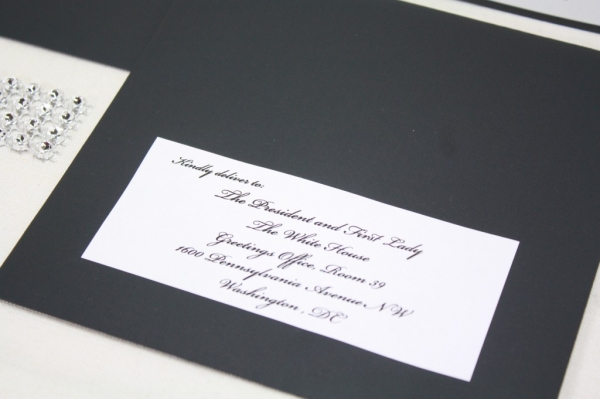 Kindly deliver to:
The President and First Lady
The White House
Greetings Office, Room 39
1600 Pennsylvania Avenue NW
Washington, DC